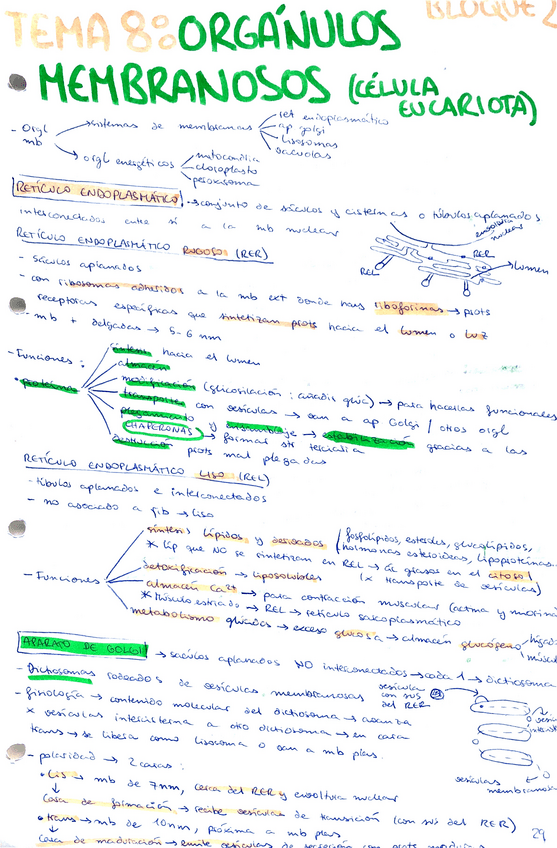 BLOQUE 2
TEMA 8: ORGÁNULOS
MEMBRANOSOS (CÉLULA
EUCARIOTA)
- Orgl mb
sistemas de membranas
ret endoplasmático
ap golgi
lisosomas
vacuolas
orgl energéticos
mitocondria
cloroplasto
peroxisoma
RETÍCULO ENDOPLASMÁTICO → conjunto de sáculos y cisternas o túbulos aplanados
interconectados entre sí a la mb nuclear
RETÍCULO ENDOPLASMÁTICO RUGOSO (RER)
envoltura nuclear
RER
REL
lumen
- sáculos aplanados
- con ribosomas adheridos a la mb ext donde hay riboforinas → prots
receptoras específicas que sintetizan prots hacia el lumen o luz
- mb + delgadas → 5-6 nm
- Funciones:
• proteína
síntesis hacia el lumen
almacén
modificación (glicosilación: añadir glúc) → para hacerlas funcionales
transporte con vesículas → van a ap Golgi / otros orgl
plegamiento y ensamblaje → estabilización gracias a las
CHAPERONAS → formar str terciaria
prots mal plegadas
RETÍCULO ENDOPLASMÁTICO LISO (REL)
- túbulos aplanados e interconectados
- no asociado a rib → liso
- Funciones
síntesis lípidos y derivados (fosfolípidos, esteroles, glucolípidos,
hormonas esteroideas, lipoproteínas...
* líp que NO se sintetizan en REL → ác grasos en el citosol
(x transporte de vesículas)
detoxificación → liposolubles
almacén Ca²⁺ → para contracción muscular (actina y miosina
* Músculo estriado → REL → retículo sarcoplasmático
metabolismo glúcidos → exceso glucosa → almacén glucógeno
hígado
múscul
APARATO DE GOLGI → sáculos aplanados NO interconectados → cada 1 → dictiosoma
- Dictiosomas rodeados de vesículas membranosas
vesícula
con sus
del RER
- fisiología → contenido molecular del dictiosoma → avanza
x vesículas intercisterna a otro dictiosoma → en cara
trans → se libera como lisosoma o van a mb plas.
vesículas
membranosas
- polaridad → 2 caras:
• Cis → mb de 7nm, cerca del RER y envoltura nuclear
↓
Cara de formación → recibe vesículas de transición (con sus del RER)
• trans → mb de 10nm, próxima a mb plas
↓
Cara de maduración → emite vesículas de secreción con prots
29